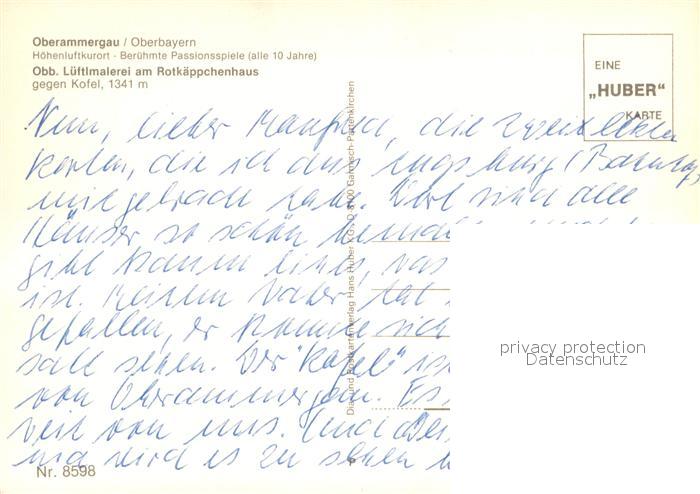 Oberammergau / Oberbayern
Höhenluftkurort - Berühmte Passionsspiele (alle 10 Jahre)
Obb. Lüftlmalerei am Rotkäppchenhaus
gegen Kofel, 1341 m
EINE
„HUBER“
KARTE
Nun, lieber Manfred, die zwei letzten
Karten, die ich aus Augsburg
mitgebracht habe. Dort sind alle
Häuser so schön bemalt
gibt kaum eines, das
ist. Meinem Vater hat
gefallen, er konnte sich
satt sehen. Der "Kofel" ist
von Oberammergau. Es
weit von uns. Und
wird es zu sehen
Dia- und Postkartenverlag Hans Huber KG, D-8100 Garmisch-Partenkirchen
privacy protection
Datenschutz
Nr. 8598